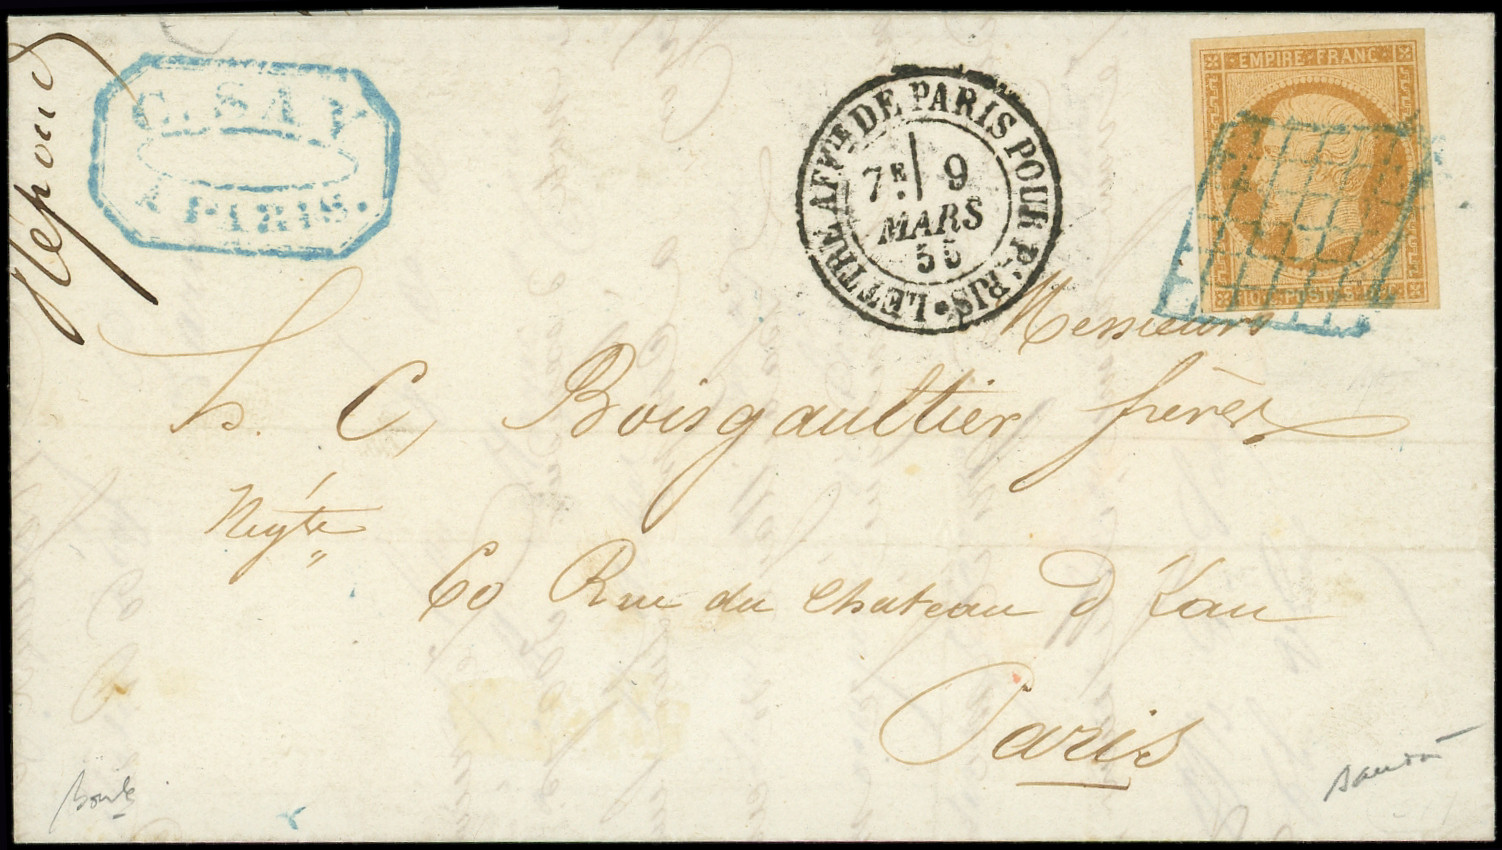 Répond
C. SAY
A PARIS.
LETTRE AFFie DE PARIS POUR PARIS
7E 9
MARS
55
EMPIRE FRANC
10 C. POSTES 10 C.
Messieurs
L. C. Boisgaultier frères
Négts
60 Rue du Chateau d'Eau
Paris